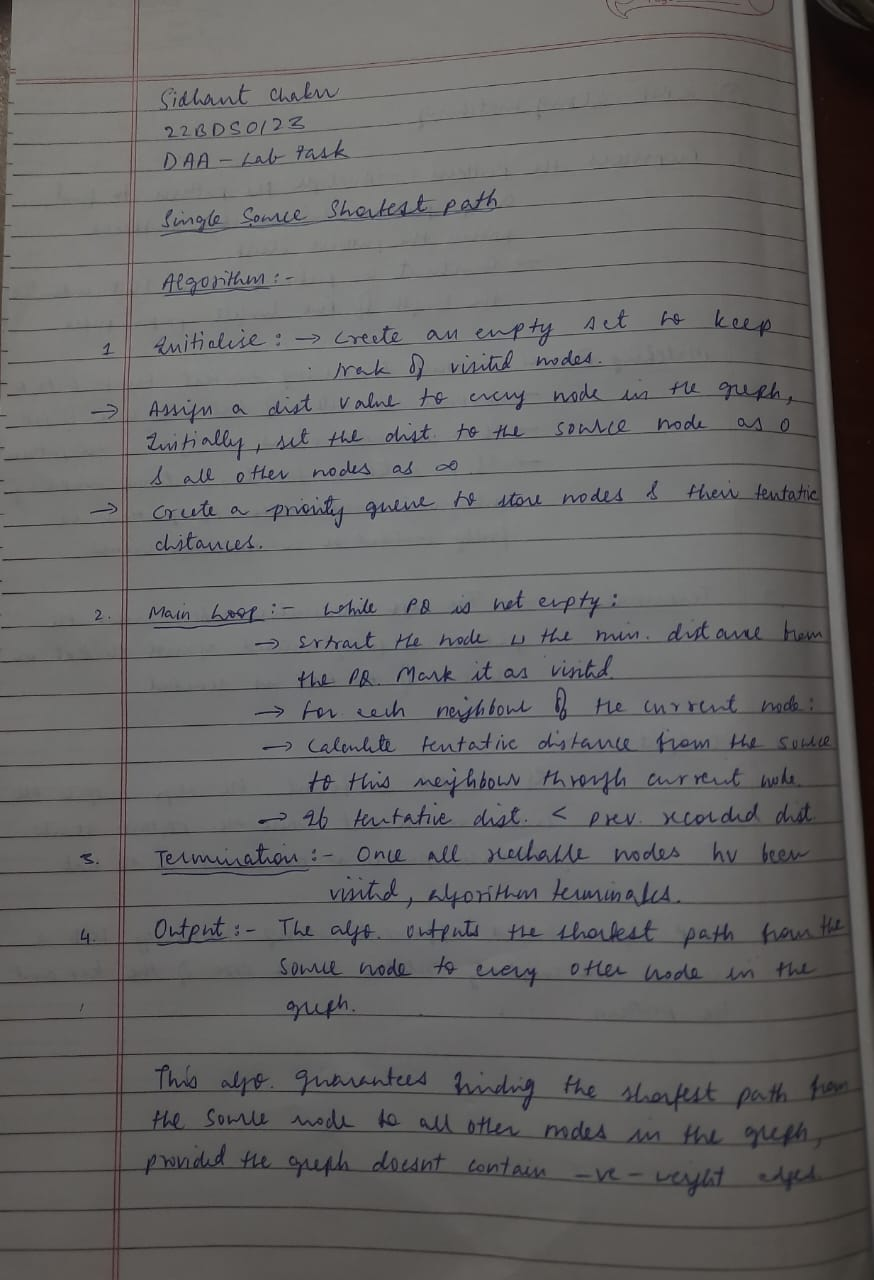 Sidhant Chahu
22BDS0123
DAA - Lab task
Single Source Shortest path
Algorithm :-
1 Initialise : → Create an empty set to keep
trak of visited nodes.
→ Assign a dist value to every node in the graph,
Initially, set the dist. to the source node as 0
& all other nodes as ∞
→ Create a priority queue to store nodes & their tentatic
distances.
2. Main Loop :- While PQ is not empty :
→ Extract the node w the min. distance from
the PQ. Mark it as visited.
→ For each neighbour of the current node :
→ Calculate tentative distance from the source
to this neighbour through current node.
→ If tentative dist. < prev. recorded dist.
3. Termination :- Once all reachable nodes hv been
visited, algorithm terminates.
4. Output :- The algo. outputs the shortest path from the
source node to every other node in the
graph.
This algo. guarantees finding the shortest path from
the source node to all other nodes in the graph,
provided the graph doesnt contain -ve - weight edges.